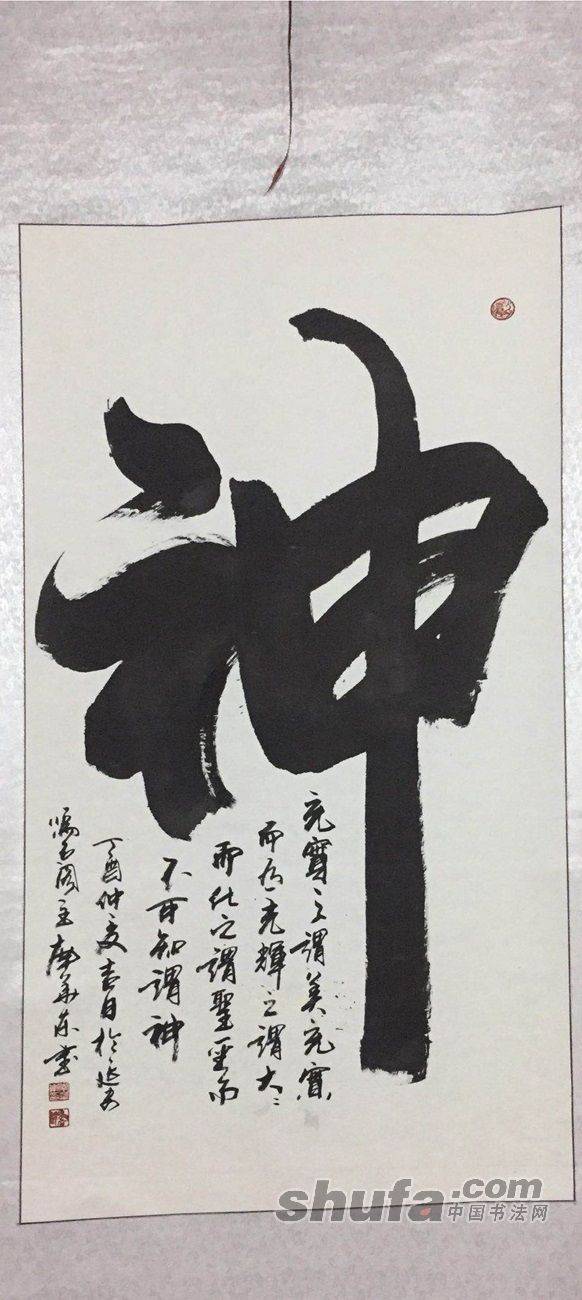 神
充實之謂美充實
而有光輝之謂大大
而化之謂聖聖而
不可知謂神
丁酉仲夏吉日於延安
閣主 華東書
shufa.com
中国书法网